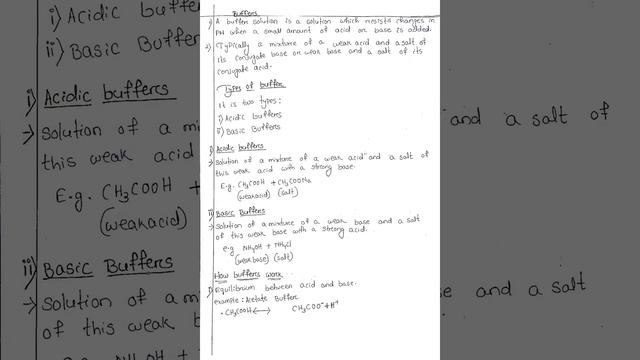 Buffers
1) A buffer solution is a solution which resists changes in
PH when a small amount of acid or base is added.
2) (Typically a mixture of a weak acid and a salt of
its conjugate base or weak base and a salt of its
conjugate acid.
Types of buffer
It is two types:
i) Acidic buffers
ii) Basic Buffers
i) Acidic buffers
→ Solution of a mixture of a weak acid and a salt of
this weak acid with a strong base.
E.g. CH3COOH + CH3COONa
(weak acid) (salt)
ii) Basic Buffers
→ Solution of a mixture of a weak base and a salt
of this weak base with a strong acid.
e.g NH4OH + NH4Cl
(weak base) (salt)
How buffers work
1) Equilibrium between acid and base.
example: Acetate Buffer
• CH3COOH ⟷ CH3COO⁻ + H⁺
i) Acidic buffe
ii) Basic Buffer
i) Acidic buffers
→ Solution of a mi
this weak acid
E.g. CH3COOH +
(weak acid)
ii) Basic Buffers
→ Solution of a m
of this weak b
and a salt of
e and a salt